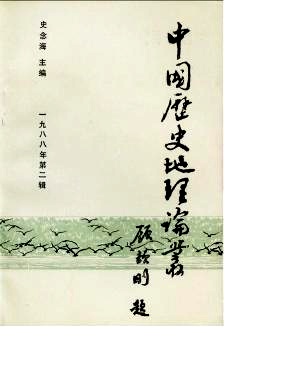 中國歷史地理論叢
顧頡剛 題
史念海 主编
一九八八年第二辑